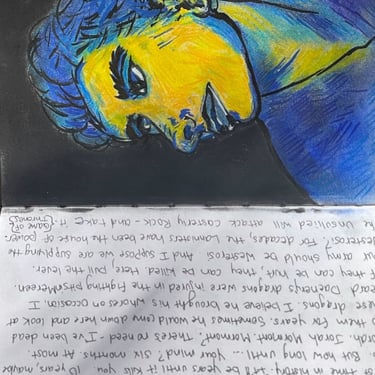 time It'll be years until it kills you 10 years, maybe
But how long until ... your mind? Six months. At most.
Jorah. Jorah Mormont. Mormont. There's no need. I've been dead
for years. Sometimes he would come down here and look at
these dragons. I believe he brought his whores on occasion. I
Daenerys dragons were injured in the fighting Meereen.
If they can be hurt, they can be killed. Here pull the lever.
our army should army Westeros. And I suppose we are supplying the
Westeros? For decades, the Lannisters have been the house of power.
The Unsullied will attack Casterly Rock - and take it. (Game of Thrones)